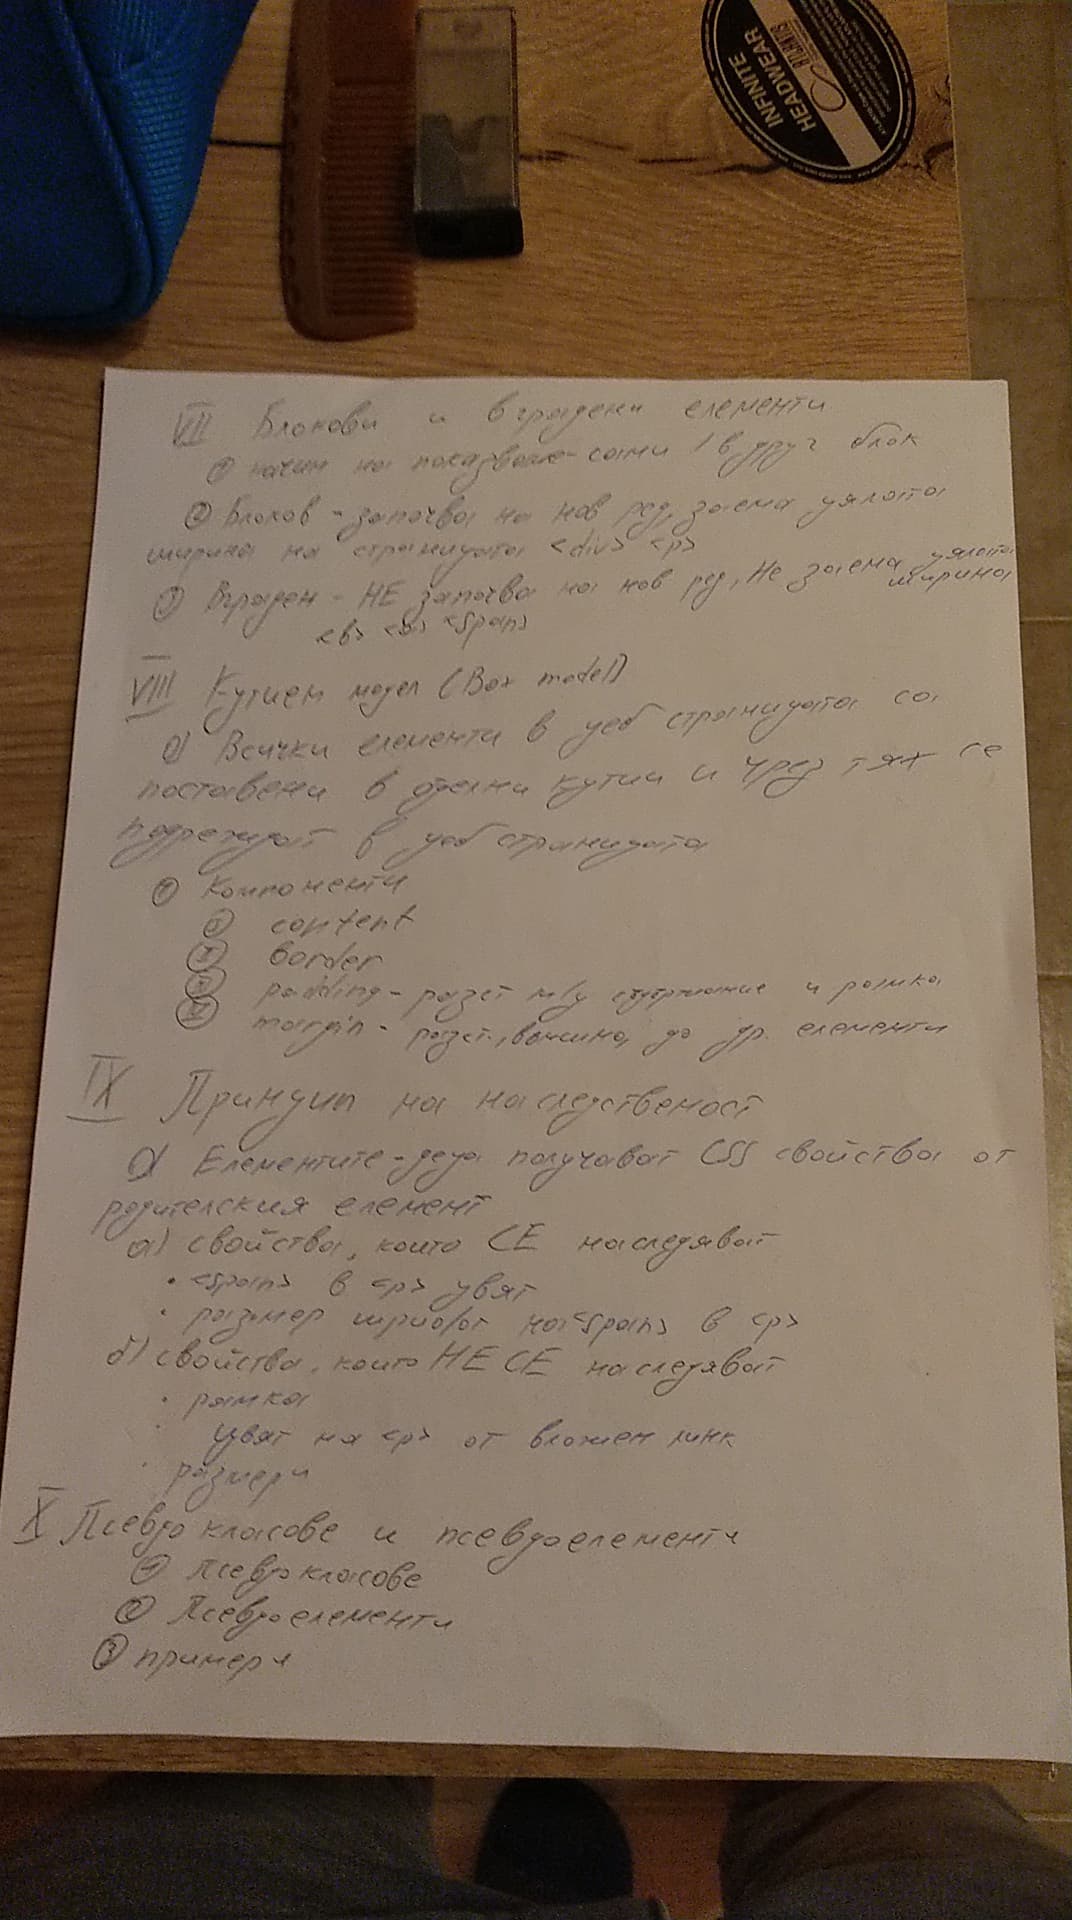 INFINITE
HEADWEAR
ATLANTIS
VII Блокови и вградени елементи
① начин на показване - сами / в друг блок
② Блоков - започва на нов ред, заема цялата
ширина на страницата <div> <p>
③ Вграден - НЕ започва на нов ред, Не заема цялата
ширина
<b> <a> <span>
VIII Кутиен модел (Box model)
0) Всички елементи в уеб страницата са
поставени в отделни кутии и чрез тях се
подреждат в уеб страницата
① Компоненти
content
border
padding - разст м/у съдържание и рамка
margin - разст., външно, до др. елементи
IX Принцип на наследственост
Елементите-деца получават CSS свойства от
родителския елемент
а) свойства, които СЕ наследяват
• <span> в <p> цвят
• размер шрифт на <span> в <p>
б) свойства, които НЕ СЕ наследяват
• рамка
цвят на <p> от вложен линк
размери
X Псевдо класове и псевдоелементи
① Псевдо класове
② Псевдоелементи
③ примери